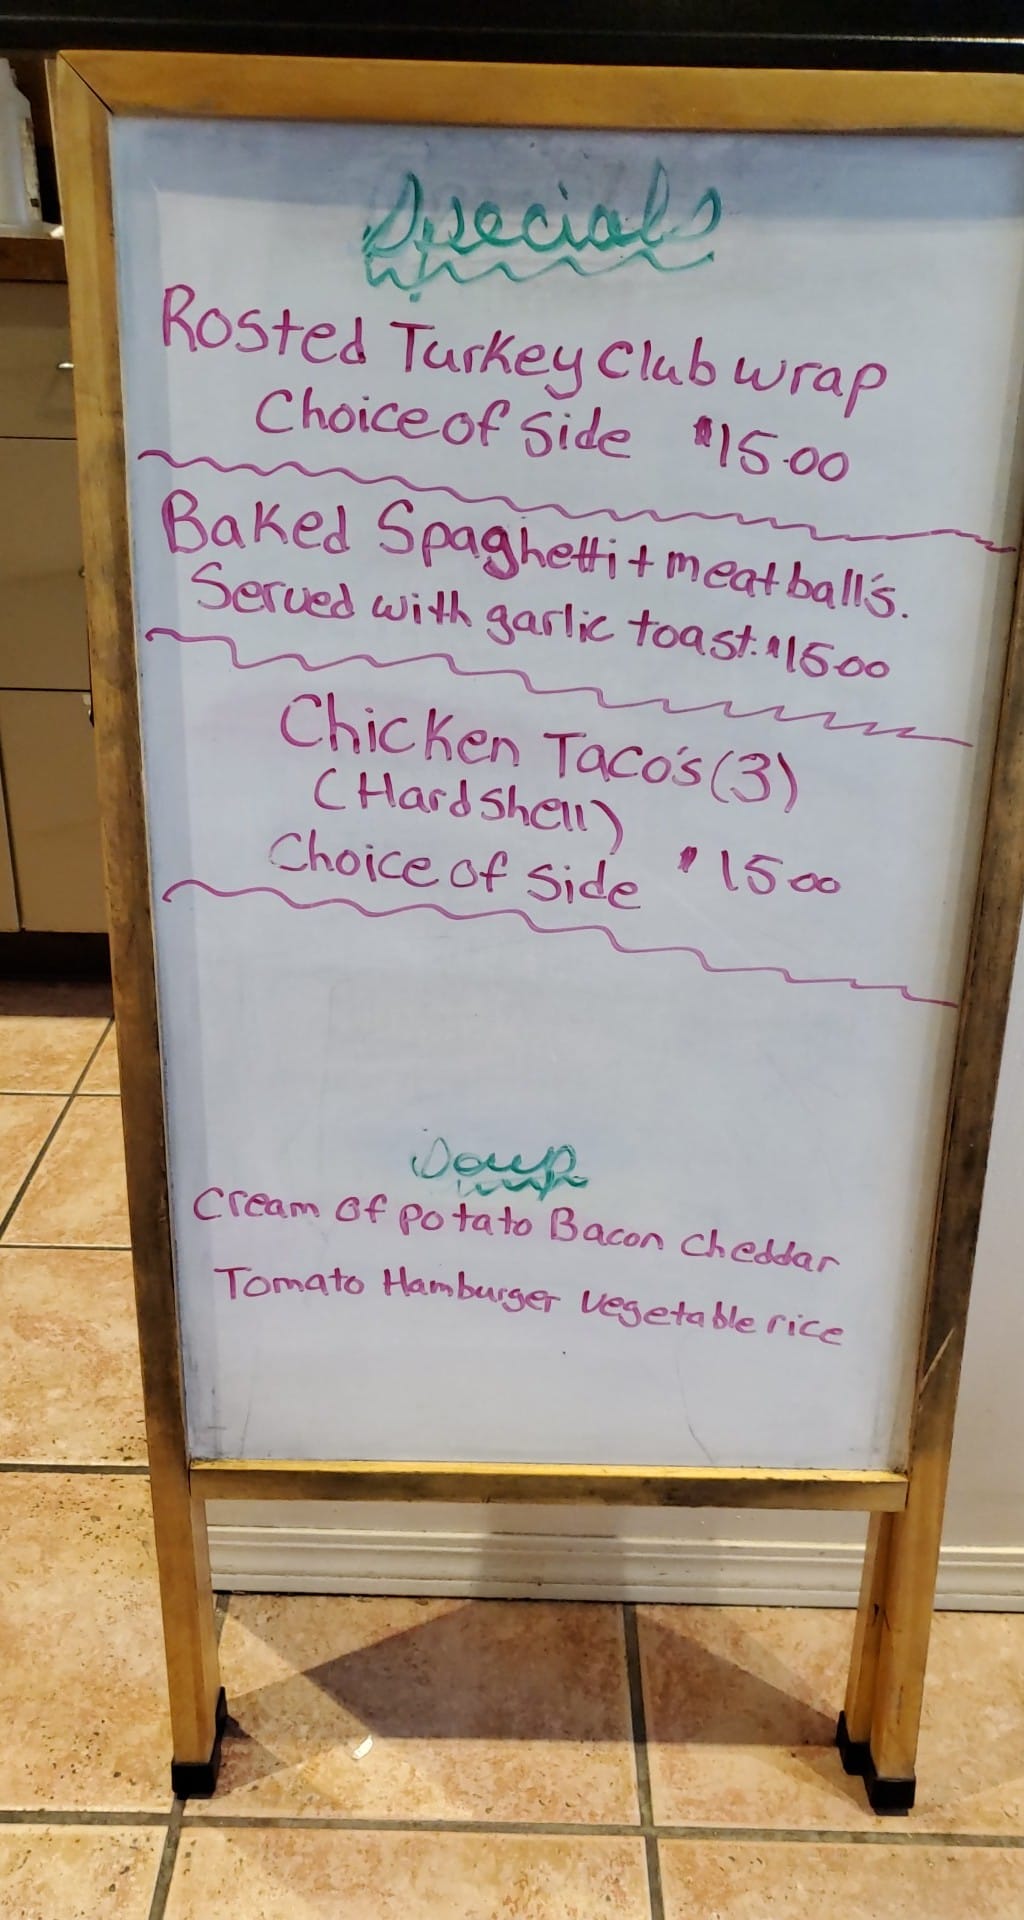 Specials
Rosted Turkey Club wrap
Choice of Side $15.00
Baked Spaghetti + meatball's.
Served with garlic toast. $15.00
Chicken Taco's (3)
(Hard Shell)
Choice of Side $15.00
Soup
Cream Of potato Bacon Cheddar
Tomato Hamburger vegetable rice